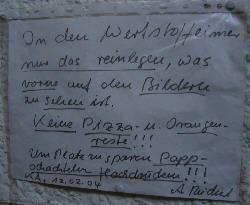 In den Wertstoffeimer
nur das reinlegen, was
vorne auf den Bildern
zu sehen ist.
Keine Pizza- u. Orangen-
reste!!!
Um Platz zu sparen Papp-
schachteln flachdrücken!!!
12.02.04 A.